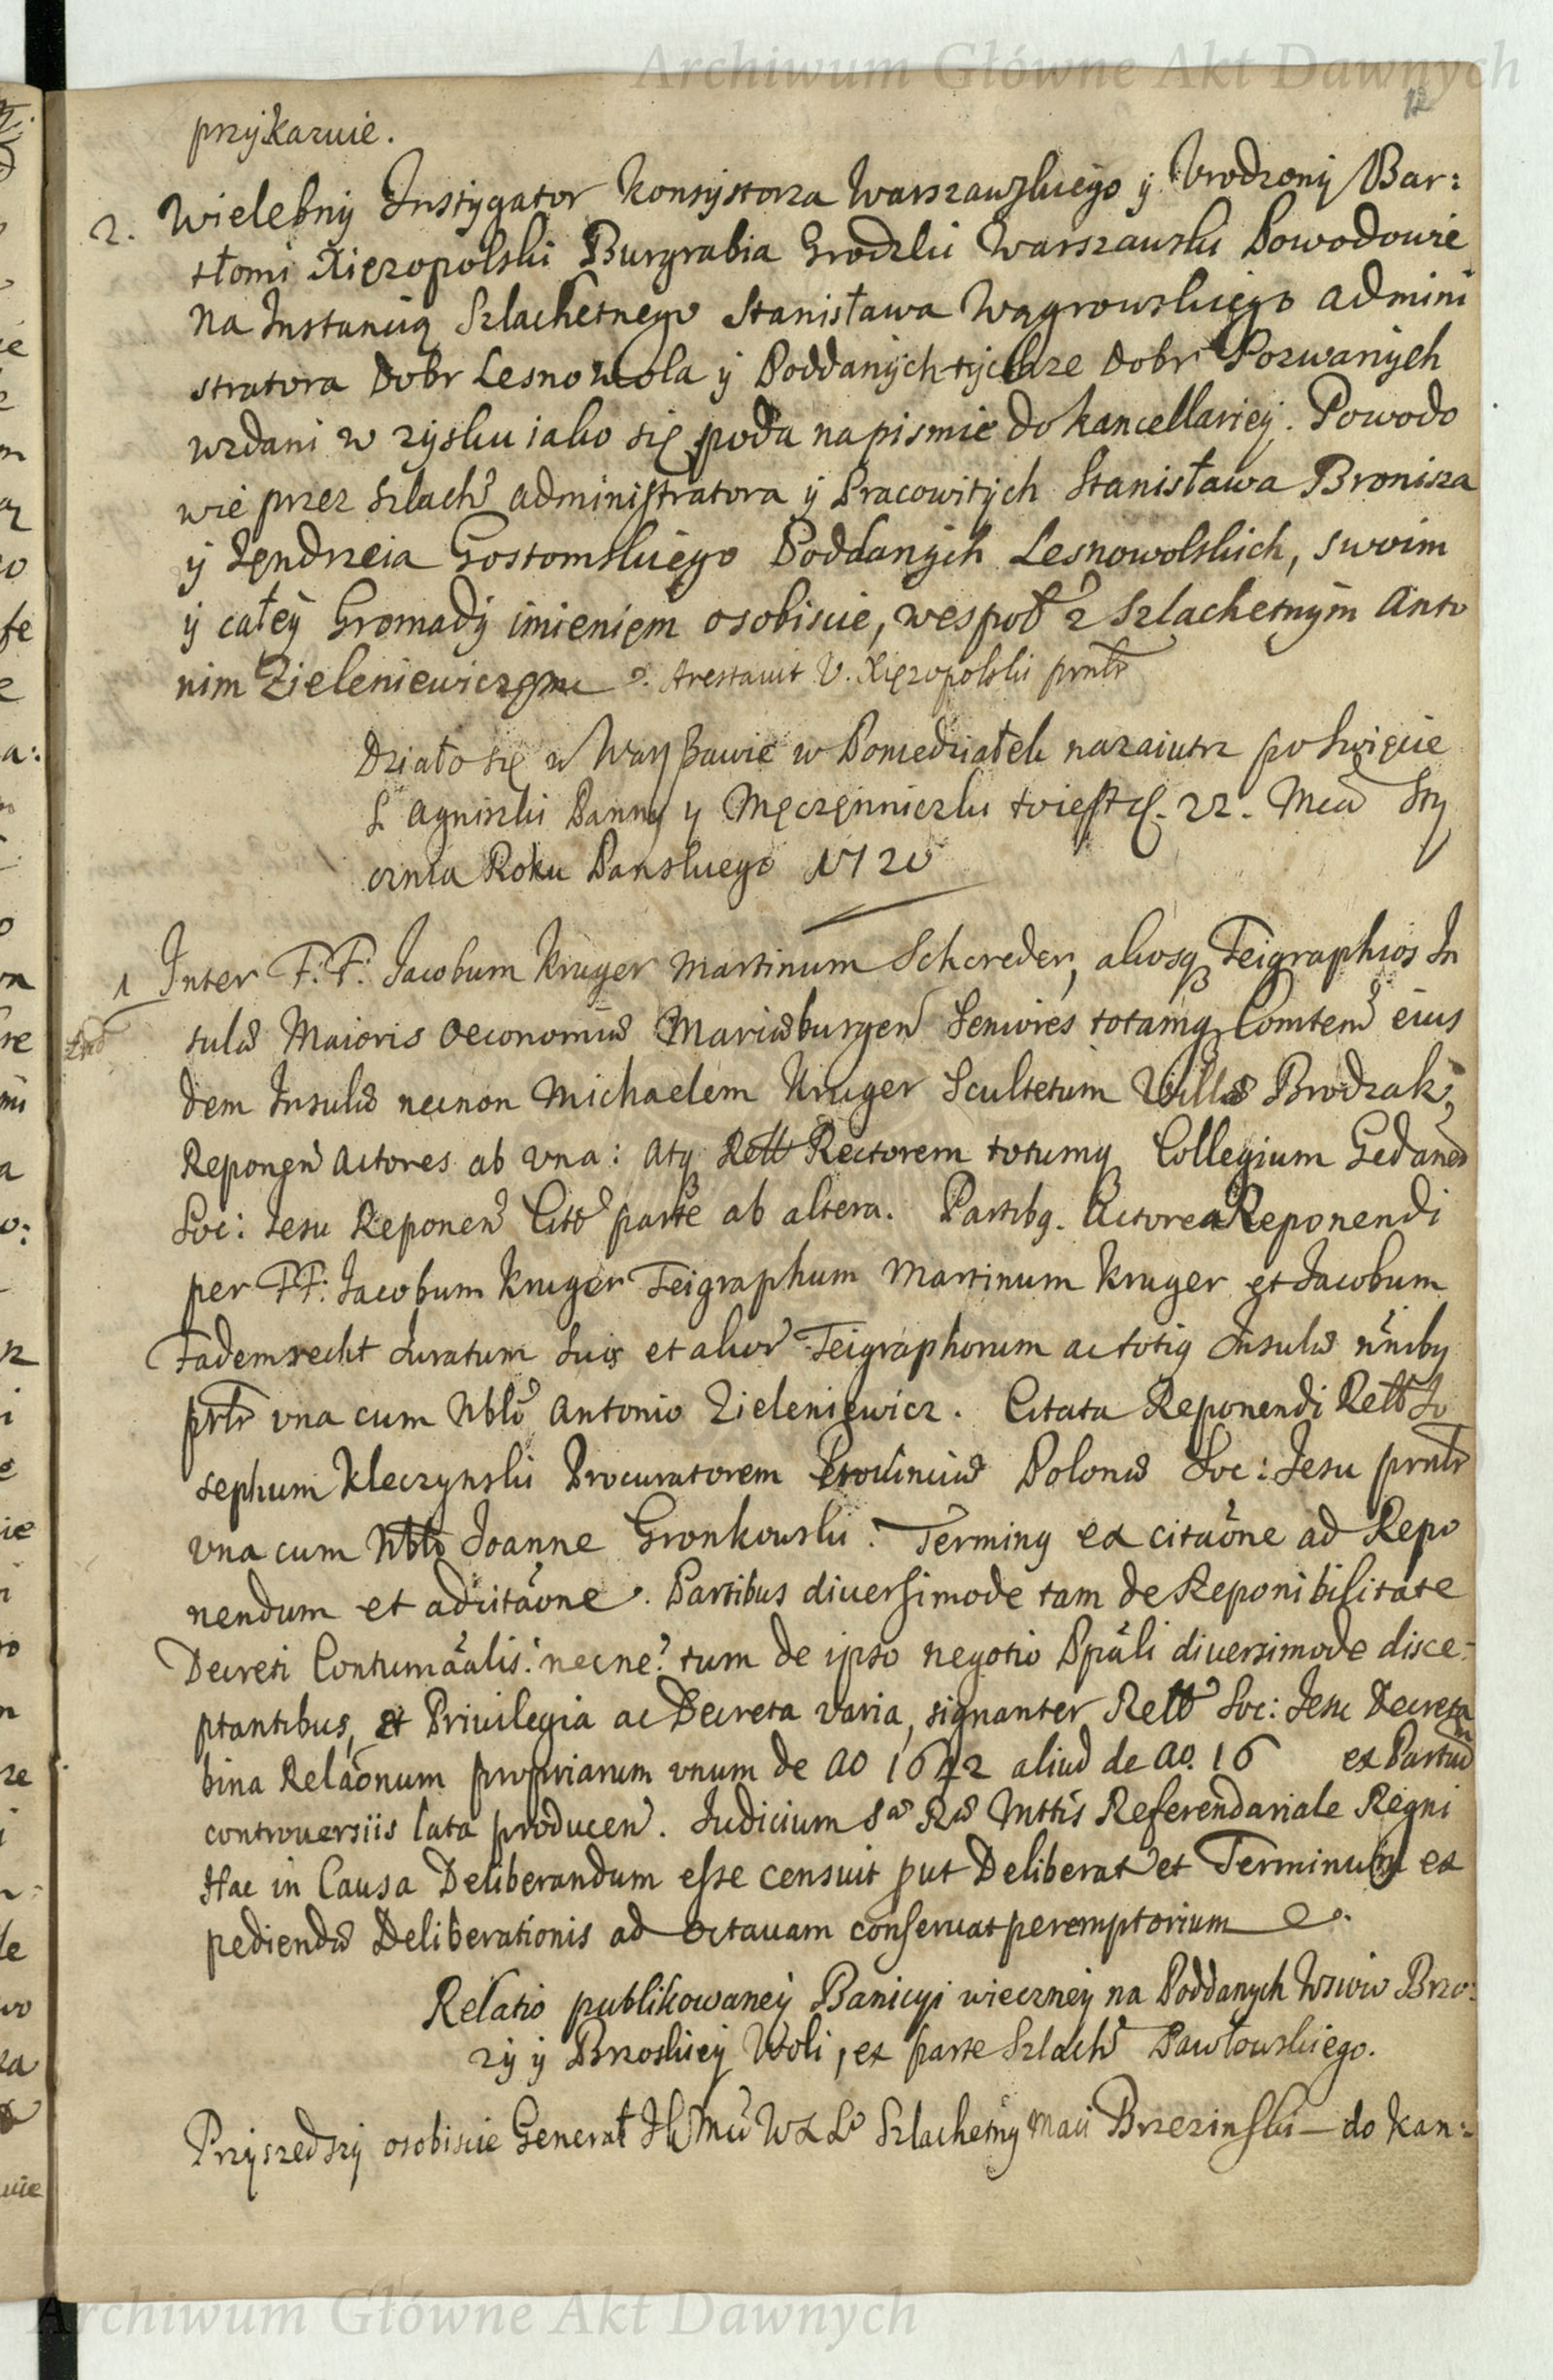 Archiwum Główne Akt Dawnych
12
przykazuie.
2. Wielebny Instygator Konsystorza Warszawskiego y Vrodzony Bar:
tłomi Xięzopolski Burgrabia Grodzki Warszawski Powodowie
na Instancią Szlachetnego Stanisława Wągrowskiego Admini
stratora Dobr Lesno Wola y Poddanych tychze Dobr Pozwanych
wzdani w zysku iako się poda na pismie do kancellariey. Powodo
wie przez Szlach administratora y Pracowitych Stanisława Bronisza
y Jendrzeia Gostomskiego Poddanych Lesnowolskich, swoim
y całey Gromady imieniem osobiscie, wespoł z Szlachetnym Anto
nim Zieleniewiczem Arestauit V. Xięzopolski pntr
Działo się w Warßawie w Poniedziałek nazaiutrz po Swięcie
S. Agniszki Panny y Męczęnniczki t. iest d. 22. Mca Sty
cznia Roku Panskiego 1720
1 Inter F.F. Jacobum Kruger Martinum Schreder, aliosq Teigraphios In
sulæ Maioris Oeconomiæ Mariæburgen Seniores totamq Comten eius
dem Insulæ necnon Michaelem Kruger Scultetum Villæ Brodzak,
Reponen Actores ab vna: atq Rectorem totumq Collegium Gedanen
Soc: Jesu Reponen Cito parte ab altera. Partibq. Actorea Reponendi
per FF: Jacobum Kruger Teigraphum Martinum Kruger et Jacobum
Fademrecht Juratum suis et alior Teigraphorum ac totiq Insulæ nnibq
pntr vna cum Nblo Antonio Zieleniewicz. Citata Reponendi Rell Jo
sephum Kleczynski Procuratorem Prouinciæ Polonæ Soc: Jesu pntr
vna cum Nblo Joanne Gronkowski. Terminq ex citaone ad Repo
nendum et adcitaone. Partibus diuersimode tam de Reponibilitate
Decreti Contumaalis: necne? tum de ipso negotio Ppali diuersimode disce-
ptantibus, et Priuilegia ac Decreta varia, signanter Rell Soc: Jesu Decreta
bina Relaonum propriarum vnum de Ao 1642 aliud de Ao. 16 ex Partiu
controuersiis lata producen. Judicium Sæ Ræ Mttis Referendariale Regni
Hac in Causa Deliberandum esse censuit put Deliberat et Terminum ex
pediendæ Deliberationis ad octauam conseruat peremptorium
Relatio publikowaney Banicyi wieczney na Poddanych Wsiow Brzo:
zy y Brzoskiey Woli, ex parte Szlach Pawłowskiego.
Przyszedszy osobiscie Generał Szlachetny Maci Brzezinski – do Kan:
Archiwum Główne Akt Dawnych